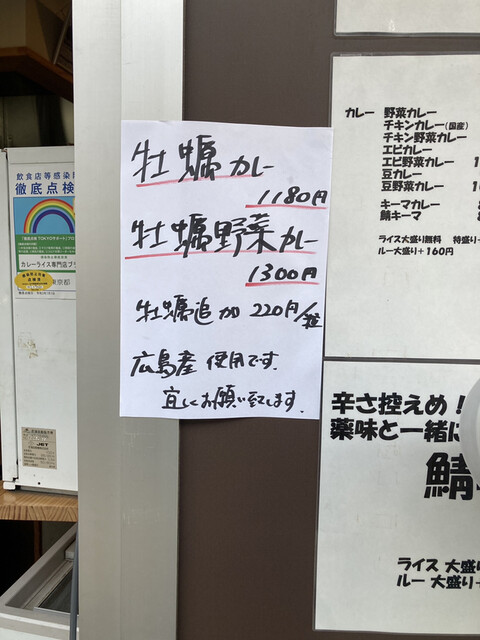 牡蠣カレー
1180円
牡蠣野菜カレー
1300円
牡蠣追加 220円/粒
広島産 使用です。
宜しくお願い致します。
カレー 野菜カレー
チキンカレー(国産)
チキン野菜カレー
エビカレー
エビ野菜カレー 1
豆カレー
豆野菜カレー
キーマカレー
鯖キーマ
ライス大盛り無料 特盛り+
ルー大盛り+160円
辛さ控えめ！
薬味と一緒に
鯖
ライス 大盛
ルー 大盛り+
飲食店等感染
徹底点検
カレーライス専門店ブ
東京都